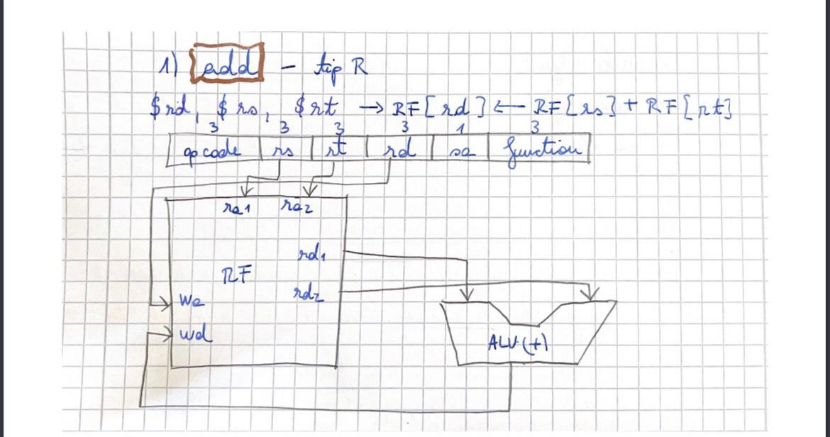 1) add - tip R
$rd, $rs, $rt → RF[rd] ← RF[rs] + RF[rt]
3 3 3 3 1 3
opcode rs rt rd sa function
ra1 ra2
rd1
RF
rd2
wa
wd
ALU(+)